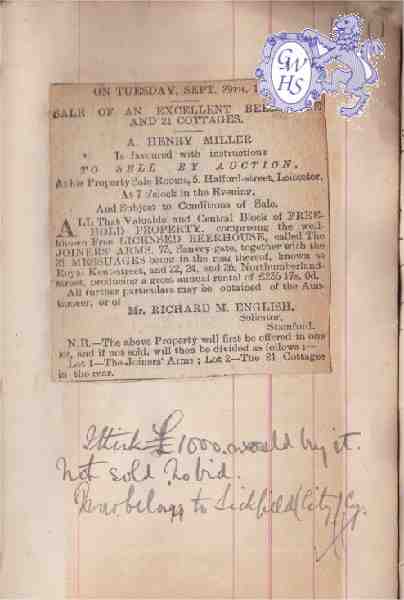 GWHS
ON TUESDAY, SEPT. 29TH,
SALE OF AN EXCELLENT
AND 21 COTTAGES.
A. HENRY MILLER
Is favoured with instructions
TO SELL BY AUCTION,
At his Property Sale Rooms, 5, Halford-street, Leicester,
At 7 o'clock in the Evening,
And Subject to Conditions of Sale.
ALL That Valuable and Central Block of FREE-
HOLD PROPERTY, comprising the well-
known Free LICENSED BEERHOUSE, called The
JOINERS' ARMS, Sanvey-gate, together with the
21 MESSUAGES being in the rear thereof, known as
Royal Kent-street, and 22, 24, and 26, Northumberland-
street, producing a gross annual rental of
All further particulars may be obtained of the Auc-
tioneer, or of
Mr. RICHARD M. ENGLISH,
Solicitor,
Stamford.
N.B.—The above Property will first be offered in one
and if not sold, will then be divided as follows:—
Lot 1—The Joiners' Arms; Lot 2—The 21 Cottages
in the rear.
I think £1000 would buy it.
Not sold No bid.
Now belongs to Lichfield City Co.